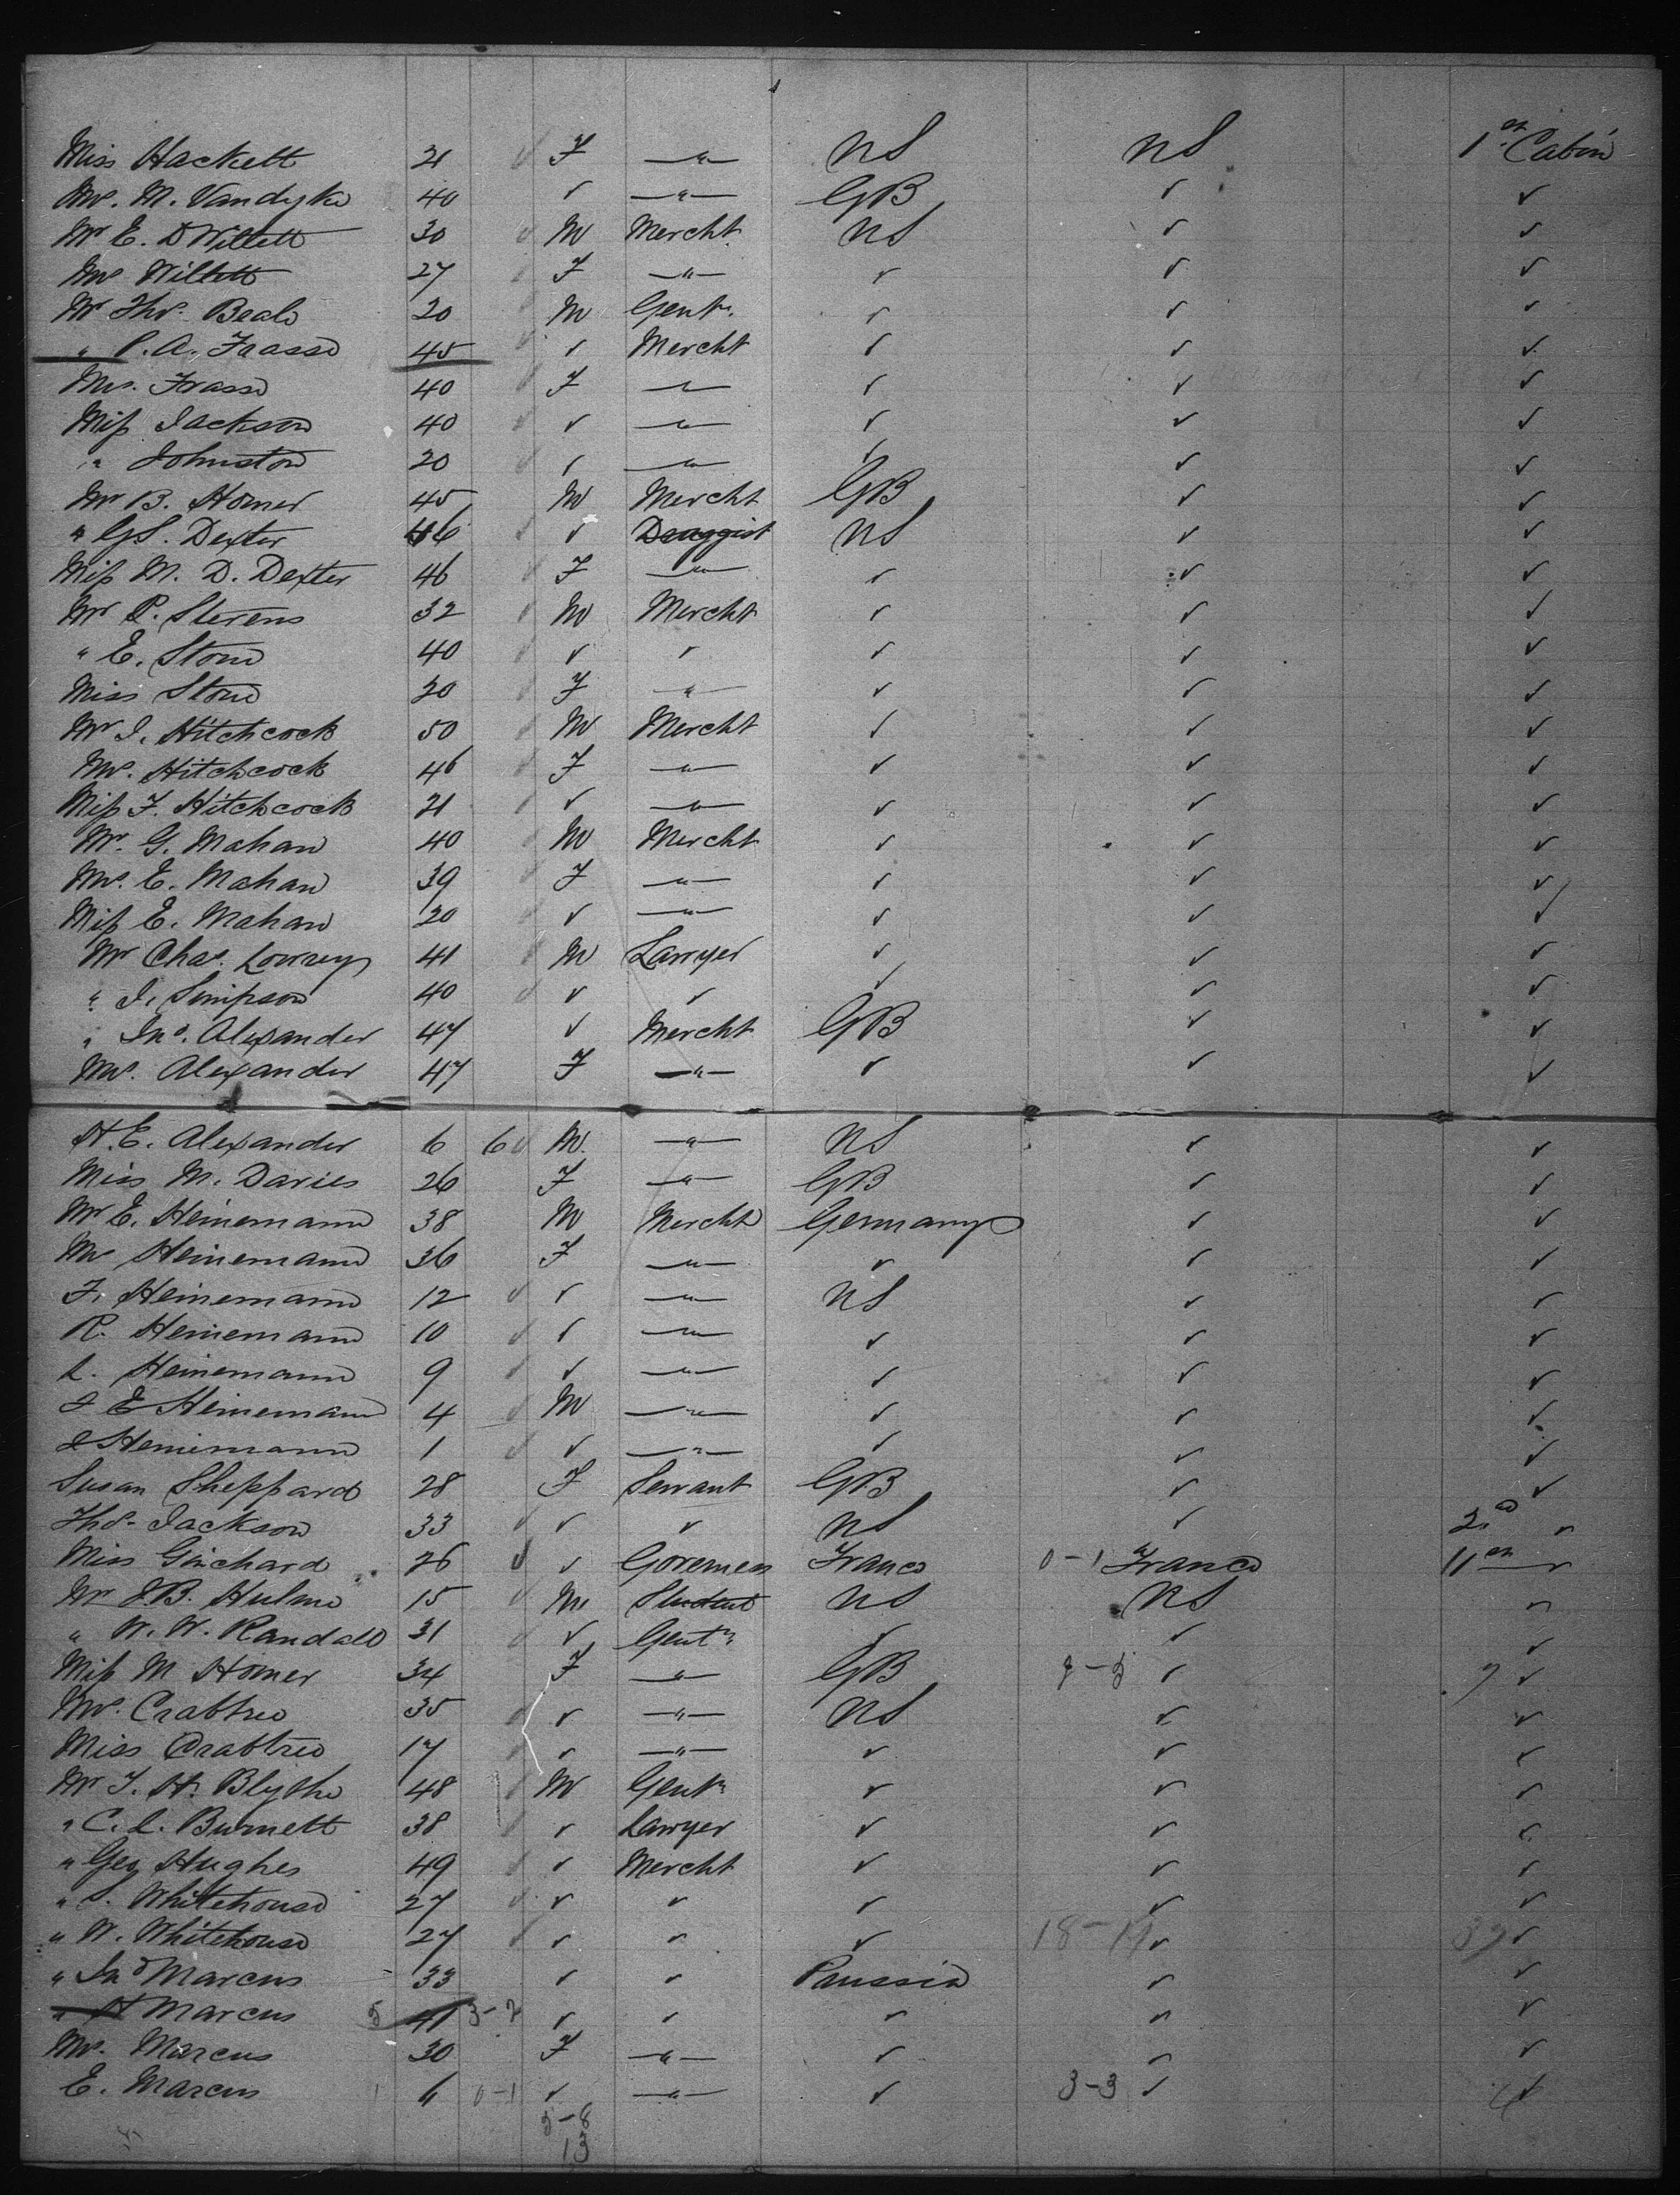 Miss Hackett 21 F —"— US US 1st Cabin
Mrs. M. Vandyke 40 ✓ —"— GB ✓ ✓
Mr E. D Willett 30 M Mercht US ✓ ✓
Mrs Willett 27 F —"— ✓ ✓ ✓
Mr Thos. Beals 20 M Gent. ✓ ✓ ✓
" P. A. Frasse 45 ✓ Mercht ✓ ✓ ✓
Mrs. Frasse 40 F —"— ✓ ✓ ✓
Miss Jackson 40 ✓ —"— ✓ ✓ ✓
" Johnston 20 ✓ —"— ✓ ✓ ✓
Mr B. Homer 45 M Mercht GB ✓ ✓
" GS. Dexter 46 ✓ Druggist US ✓ ✓
Miss M. D. Dexter 46 F —"— ✓ ✓ ✓
Mr P. Stevens 32 M Mercht ✓ ✓ ✓
" E. Stone 40 ✓ ✓ ✓ ✓ ✓
Miss Stone 20 F —"— ✓ ✓ ✓
Mr I. Hitchcock 50 M Mercht ✓ ✓ ✓
Mrs. Hitchcock 46 F —"— ✓ ✓ ✓
Miss F. Hitchcock 21 ✓ —"— ✓ ✓ ✓
Mr. G. Mahan 40 M Mercht ✓ ✓ ✓
Mrs. E. Mahan 39 F —"— ✓ ✓ ✓
Miss E. Mahan 20 ✓ —"— ✓ ✓ ✓
Mr Chas. Lowrey 41 M Lawyer ✓ ✓ ✓
" I. Simpson 40 ✓ ✓ ✓ ✓ ✓
" Jno. Alexander 47 ✓ Mercht GB ✓ ✓
Mrs. Alexander 47 F —"— ✓ ✓ ✓
H. E. Alexander 6 6 M. —"— US ✓ ✓
Miss M. Davies 26 F —"— GB ✓ ✓
Mr E. Heinemann 38 M Mercht Germany ✓ ✓
Mrs Heinemann 36 F —"— ✓ ✓ ✓
F. Heinemann 12 ✓ —"— US ✓ ✓
R. Heinemann 10 ✓ —"— ✓ ✓ ✓
L. Heinemann 9 ✓ —"— ✓ ✓ ✓
E Heinemann 4 M —"— ✓ ✓ ✓
Heinemann 1 ✓ —"— ✓ ✓ ✓
Susan Sheppard 28 F Servant GB ✓ ✓
Thos. Jackson 33 ✓ ✓ US ✓ 2nd ✓
Miss Guichard 26 ✓ Governess France 0-1 France 1st ✓
Mr J. B. Hulme 15 M Student US US ✓
" W. W. Randall 31 ✓ Gent. ✓ ✓ ✓
Miss M Homer 34 F —"— GB ✓ ✓
Mrs. Crabtree 35 ✓ —"— US ✓ ✓
Miss Crabtree 17 ✓ —"— ✓ ✓ ✓
Mr T. H. Blythe 48 M Gent. ✓ ✓ ✓
" C. L. Burnett 38 ✓ Lawyer ✓ ✓ ✓
" Geo Hughes 49 ✓ Mercht ✓ ✓ ✓
" S. Whitehouse 27 ✓ ✓ ✓ ✓ ✓
" W. Whitehouse 27 ✓ ✓ ✓ ✓ ✓
" Jno Marcus 33 ✓ ✓ Prussia ✓ ✓
" H Marcus 41 ✓ ✓ ✓ ✓ ✓
Mrs. Marcus 30 F —"— ✓ ✓ ✓
E. Marcus 6 0-1 ✓ —"— ✓ 3-3 ✓ ✓
5-8
13